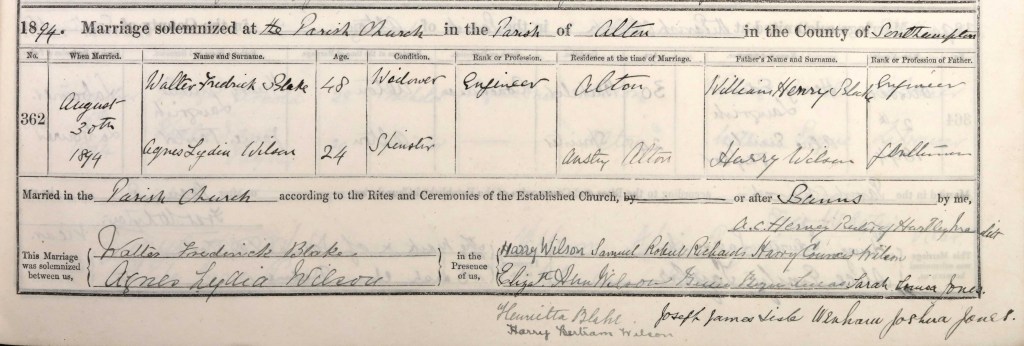 1894. Marriage solemnized at the Parish Church in the Parish of Alton in the County of Southampton
No. When Married. Name and Surname. Age. Condition. Rank or Profession. Residence at the time of Marriage. Father's Name and Surname. Rank or Profession of Father.
362 August 30th 1894
Walter Fredrick Blake 48 Widower Engineer Alton William Henry Blake Engineer
Agnes Lydia Wilson 24 Spinster Alton Harry Wilson Gentleman
Married in the Parish Church according to the Rites and Ceremonies of the Established Church, by or after Banns by me,
A. C. Hervey
This Marriage was solemnized between us,
Walter Frederick Blake
Agnes Lydia Wilson
in the Presence of us,
Harry Wilson Samuel Robert Richards Harry Wilson
Elizth Ann Wilson Sarah Jones.
Henrietta Blake. Joseph James Wenham Joshua Jones.
Harry Bertram Wilson